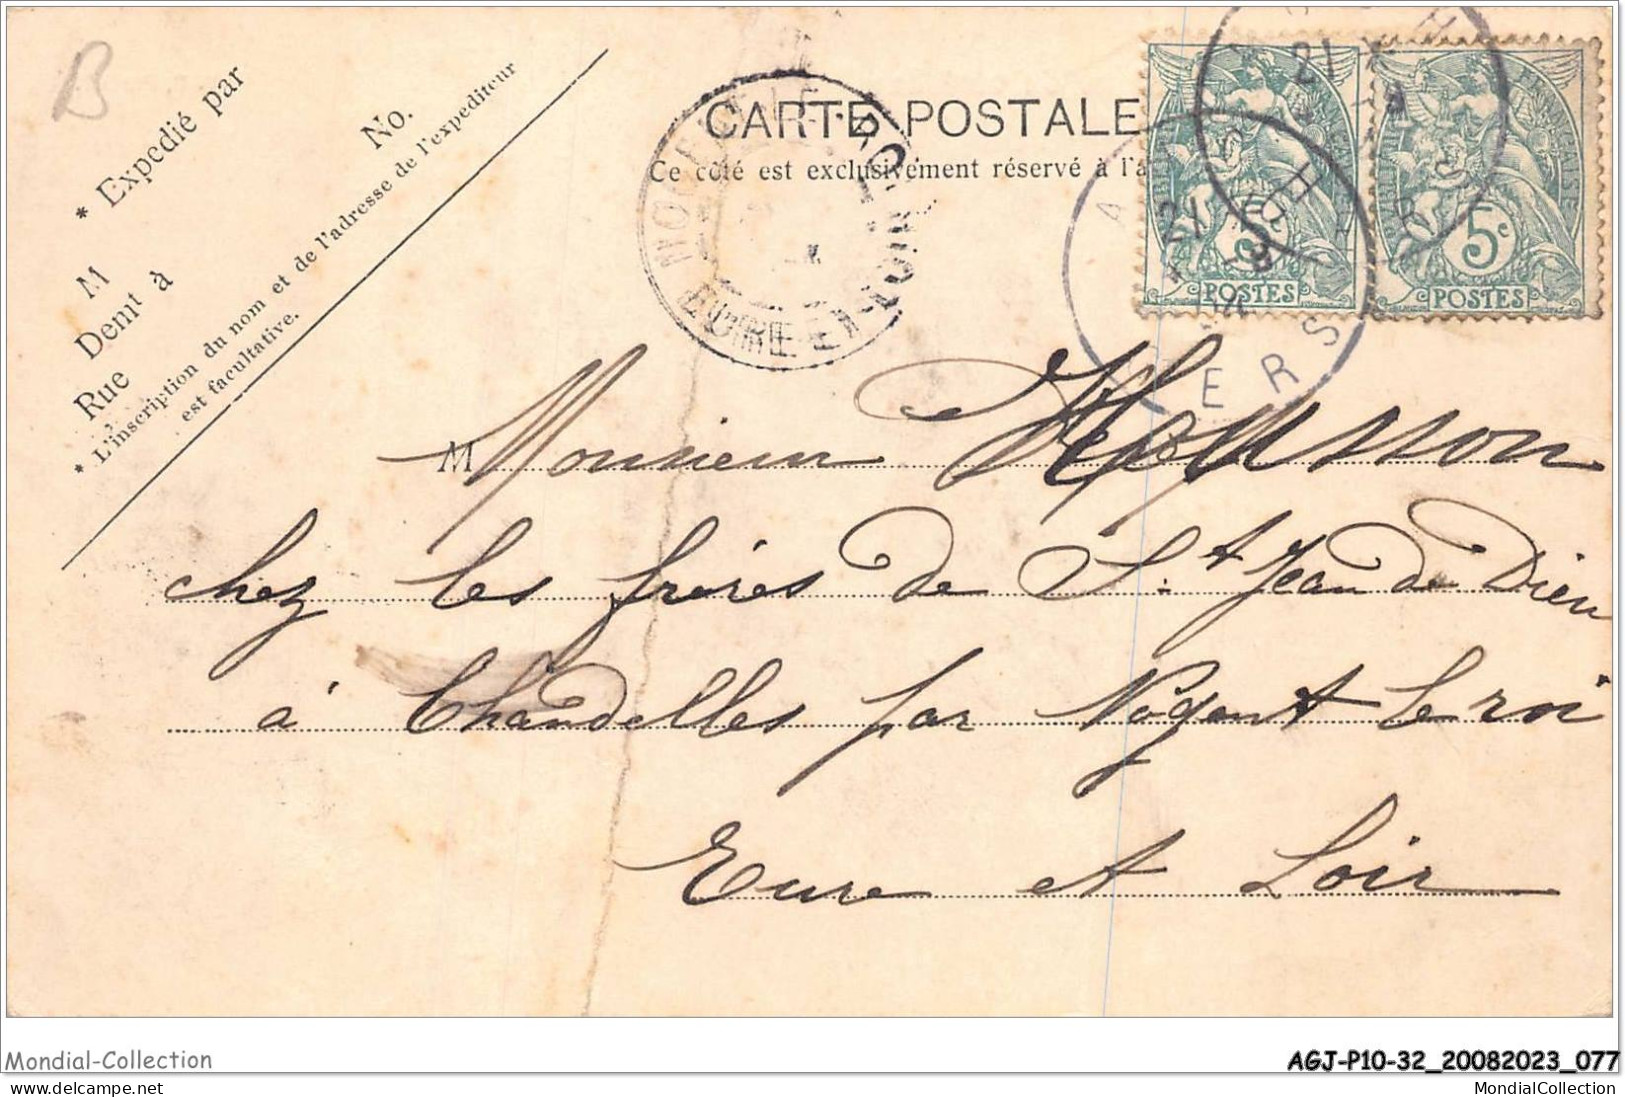 B
* Expédié par
No.
M
Demt à
Rue
* L'inscription du nom et de l'adresse de l'expéditeur
est facultative.
CARTE POSTALE
Ce côté est exclusivement réservé à l'a
NOGENT-LE-ROI
EURE-ET-LOIR
AUCH
21
GERS
RÉPUBLIQUE FRANÇAISE
5c
POSTES
POSTES
M Monsieur Housson
chez les frères de St Jean de Dieu
à Chandelles par Nogent le roi
Eure et Loir
Mondial-Collection
AGJ-P10-32_20082023_077
MondialCollection